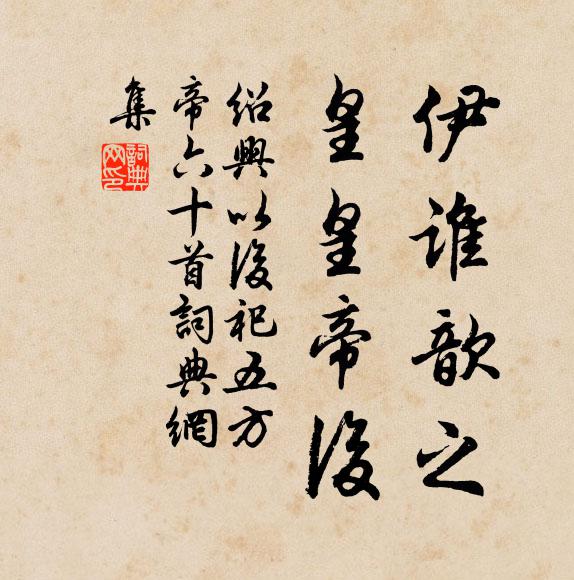 伊谁歆之
皇皇帝後
紹興以後祀五方
帝六十首詞典網
集
詞典
网印